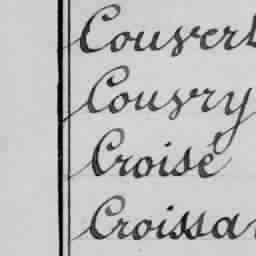 Couvert
Couvry
Croisé
Croissa